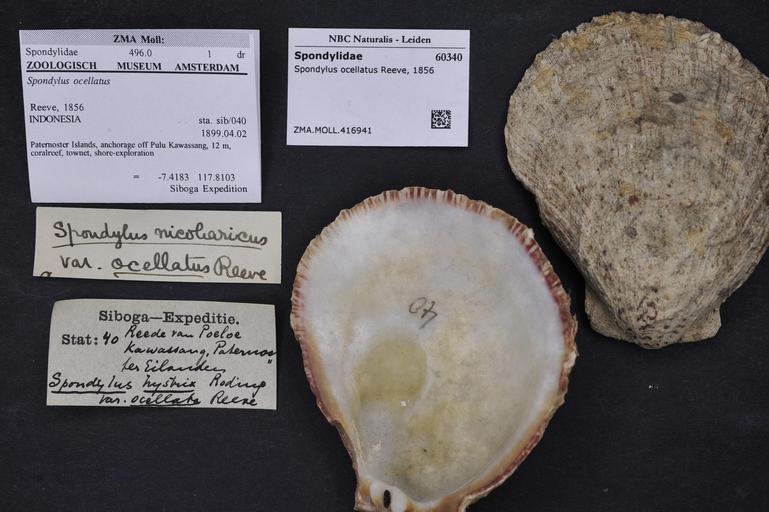 ZMA Moll:
Spondylidae 496.0 1 dr
ZOOLOGISCH MUSEUM AMSTERDAM
Spondylus ocellatus
Reeve, 1856
INDONESIA sta. sib/040
1899.04.02
Paternoster Islands, anchorage off Pulu Kawassang, 12 m,
coralreef, townet, shore-exploration
= -7.4183 117.8103
Siboga Expedition
NBC Naturalis - Leiden
Spondylidae 60340
Spondylus ocellatus Reeve, 1856
ZMA.MOLL.416941
Spondylus nicobaricus
var. ocellatus Reeve
Siboga—Expeditie.
Stat: 40 Reede van Poeloe
Kawassang, Paternos
ter Eilanden
Spondylus hystrix Roding
var. ocellata Reeve
40